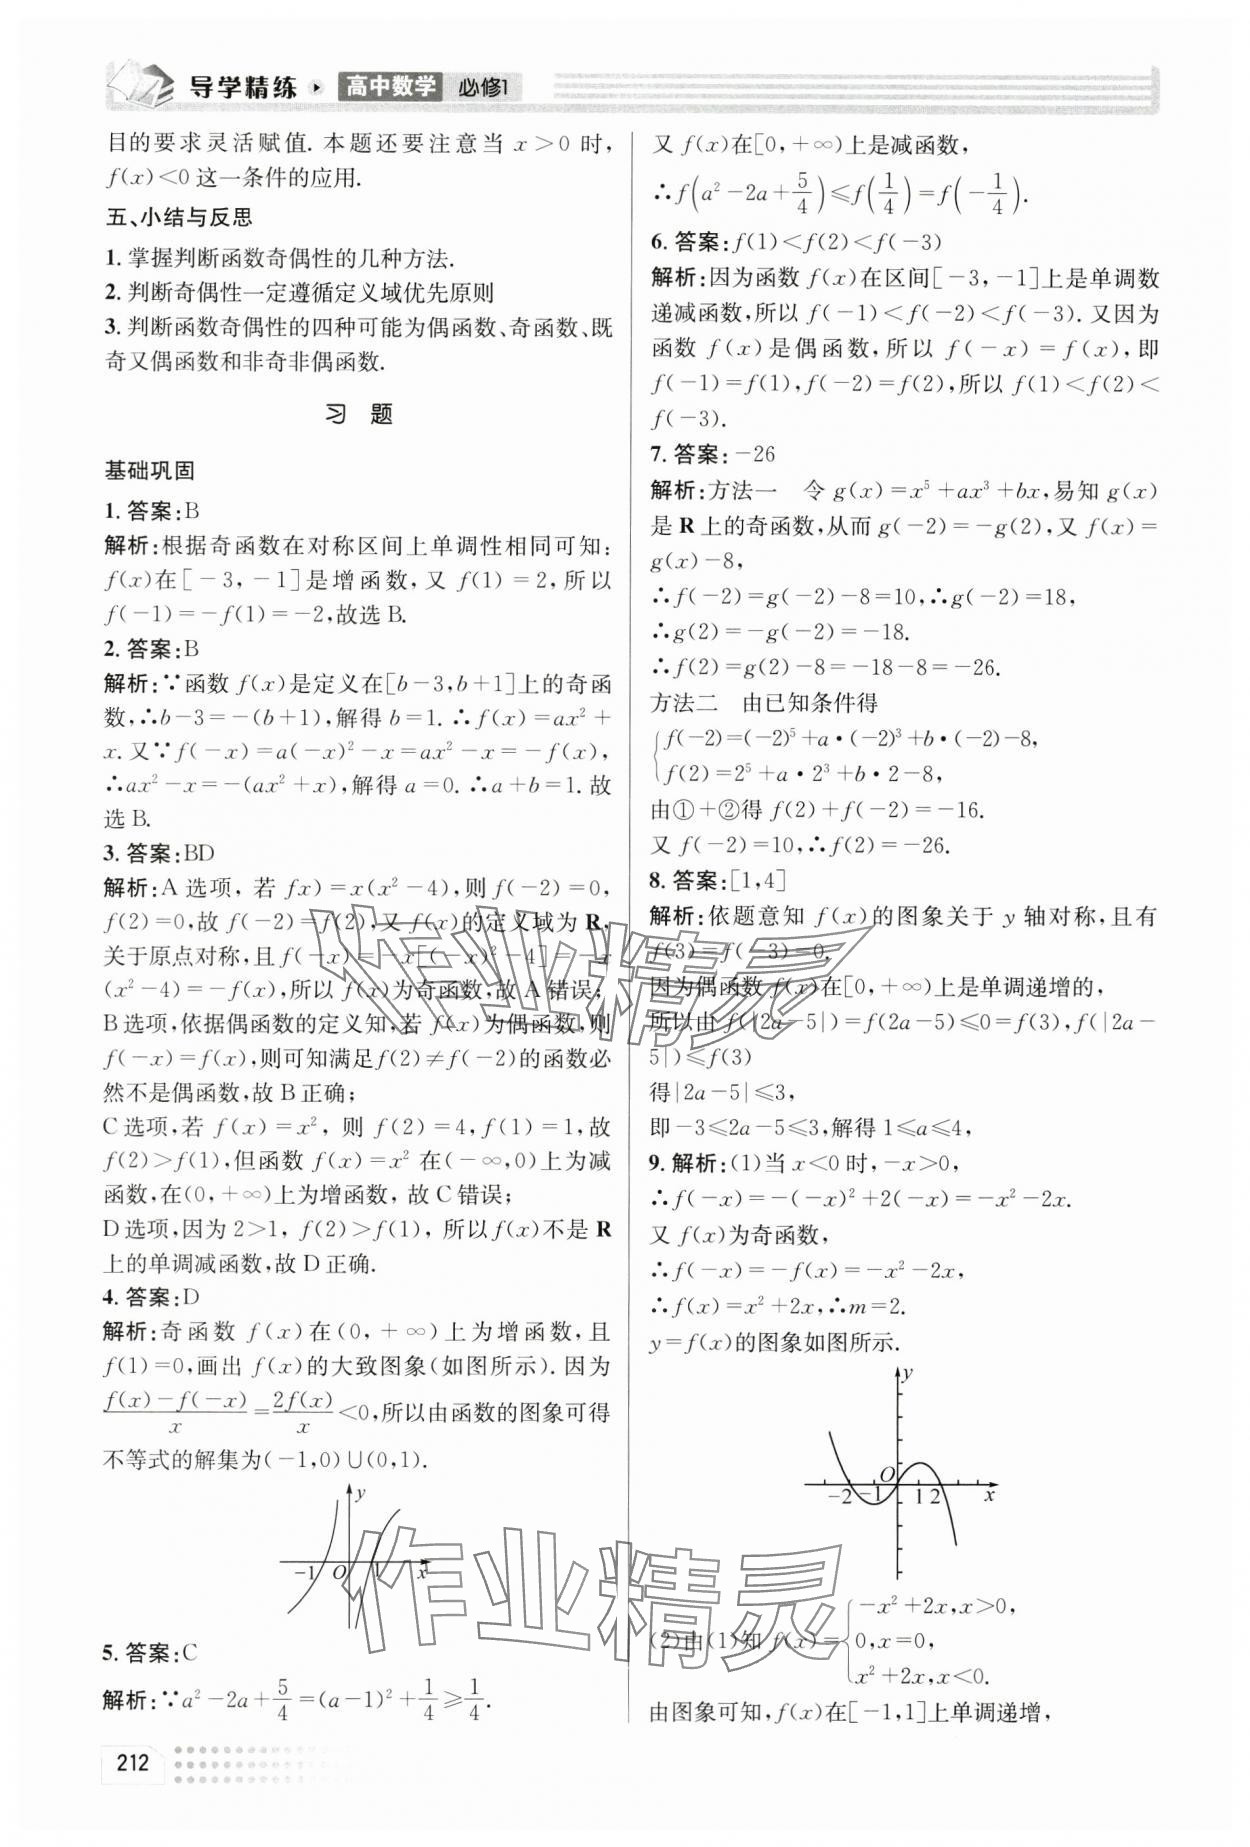 导学精练 高中数学 必修1
目的要求灵活赋值. 本题还要注意当 x>0 时,
f(x)<0 这一条件的应用.
五、小结与反思
1. 掌握判断函数奇偶性的几种方法.
2. 判断奇偶性一定遵循定义域优先原则
3. 判断函数奇偶性的四种可能为偶函数、奇函数、既
奇又偶函数和非奇非偶函数.
习 题
基础巩固
1. 答案:B
解析:根据奇函数在对称区间上单调性相同可知:
f(x)在[-3,-1]是增函数,又 f(1)=2,所以
f(-1)=-f(1)=-2,故选 B.
2. 答案:B
解析:∵函数 f(x)是定义在[b-3,b+1]上的奇函
数,∴b-3=-(b+1),解得 b=1. ∴f(x)=ax²+
x. 又∵f(-x)=a(-x)²-x=ax²-x=-f(x),
∴ax²-x=-(ax²+x),解得 a=0. ∴a+b=1. 故
选 B.
3. 答案:BD
解析:A 选项,若 fx)=x(x²-4),则 f(-2)=0,
f(2)=0,故 f(-2)=f(2),又 f(x)的定义域为 R,
关于原点对称,且 f(-x)=-x[(-x)²-4]=-x
(x²-4)=-f(x),所以 f(x)为奇函数,故 A 错误;
B 选项,依据偶函数的定义知,若 f(x)为偶函数,则
f(-x)=f(x),则可知满足 f(2)≠f(-2)的函数必
然不是偶函数,故 B 正确;
C 选项,若 f(x)=x²,则 f(2)=4,f(1)=1,故
f(2)>f(1),但函数 f(x)=x² 在(-∞,0)上为减
函数,在(0,+∞)上为增函数,故 C 错误;
D 选项,因为 2>1,f(2)>f(1),所以 f(x)不是 R
上的单调减函数,故 D 正确.
4. 答案:D
解析:奇函数 f(x)在(0,+∞)上为增函数,且
f(1)=0,画出 f(x)的大致图象(如图所示). 因为
(f(x)-f(-x))/x=2f(x)/x<0,所以由函数的图象可得
不等式的解集为(-1,0)∪(0,1).
y
-1 O 1 x
5. 答案:C
解析:∵a²-2a+5/4=(a-1)²+1/4≥1/4.
212
又 f(x)在[0,+∞)上是减函数,
∴f(a²-2a+5/4)≤f(1/4)=f(-1/4).
6. 答案:f(1)<f(2)<f(-3)
解析:因为函数 f(x)在区间[-3,-1]上是单调数
递减函数,所以 f(-1)<f(-2)<f(-3). 又因为
函数 f(x)是偶函数,所以 f(-x)=f(x),即
f(-1)=f(1),f(-2)=f(2),所以 f(1)<f(2)<
f(-3).
7. 答案:-26
解析:方法一 令 g(x)=x⁵+ax³+bx,易知 g(x)
是 R 上的奇函数,从而 g(-2)=-g(2),又 f(x)=
g(x)-8,
∴f(-2)=g(-2)-8=10,∴g(-2)=18,
∴g(2)=-g(-2)=-18.
∴f(2)=g(2)-8=-18-8=-26.
方法二 由已知条件得
{f(-2)=(-2)⁵+a·(-2)³+b·(-2)-8,
f(2)=2⁵+a·2³+b·2-8,
由①+②得 f(2)+f(-2)=-16.
又 f(-2)=10,∴f(2)=-26.
8. 答案:[1,4]
解析:依题意知 f(x)的图象关于 y 轴对称,且有
f(3)=f(-3)=0.
因为偶函数 f(x)在[0,+∞)上是单调递增的,
所以由 f(|2a-5|)=f(2a-5)≤0=f(3),f(|2a-
5|)≤f(3)
得|2a-5|≤3,
即-3≤2a-5≤3,解得 1≤a≤4,
9. 解析:(1)当 x<0 时,-x>0,
∴f(-x)=-(-x)²+2(-x)=-x²-2x.
又 f(x)为奇函数,
∴f(-x)=-f(x)=-x²-2x,
∴f(x)=x²+2x,∴m=2.
y=f(x)的图象如图所示.
y
-2 -1 O 1 2 x
(2)由(1)知 f(x)={-x²+2x,x>0,
0,x=0,
x²+2x,x<0.
由图象可知,f(x)在[-1,1]上单调递增,
作业精灵
作业精灵